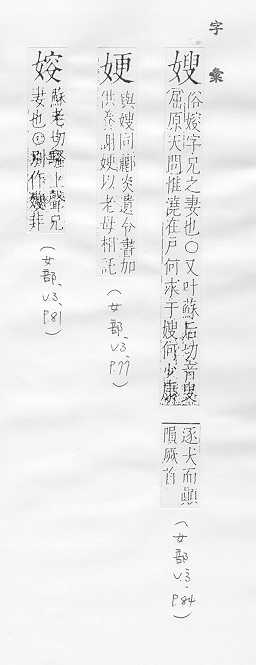 字彙
嫂
俗㛮字兄之妻也○又叶蘇后切音叟
屈原天問惟澆在戸何求于嫂何少康
逐犬而顚
隕厥首
(女部、V.3、P.84)
㛐
與嫂同酈炎遺令書加
供養謝嫂以老母相託
(女部、V.3、P.77)
㛮
蘇老切騷上聲兄
妻也 別作 非
(女部、V.3、P.81)